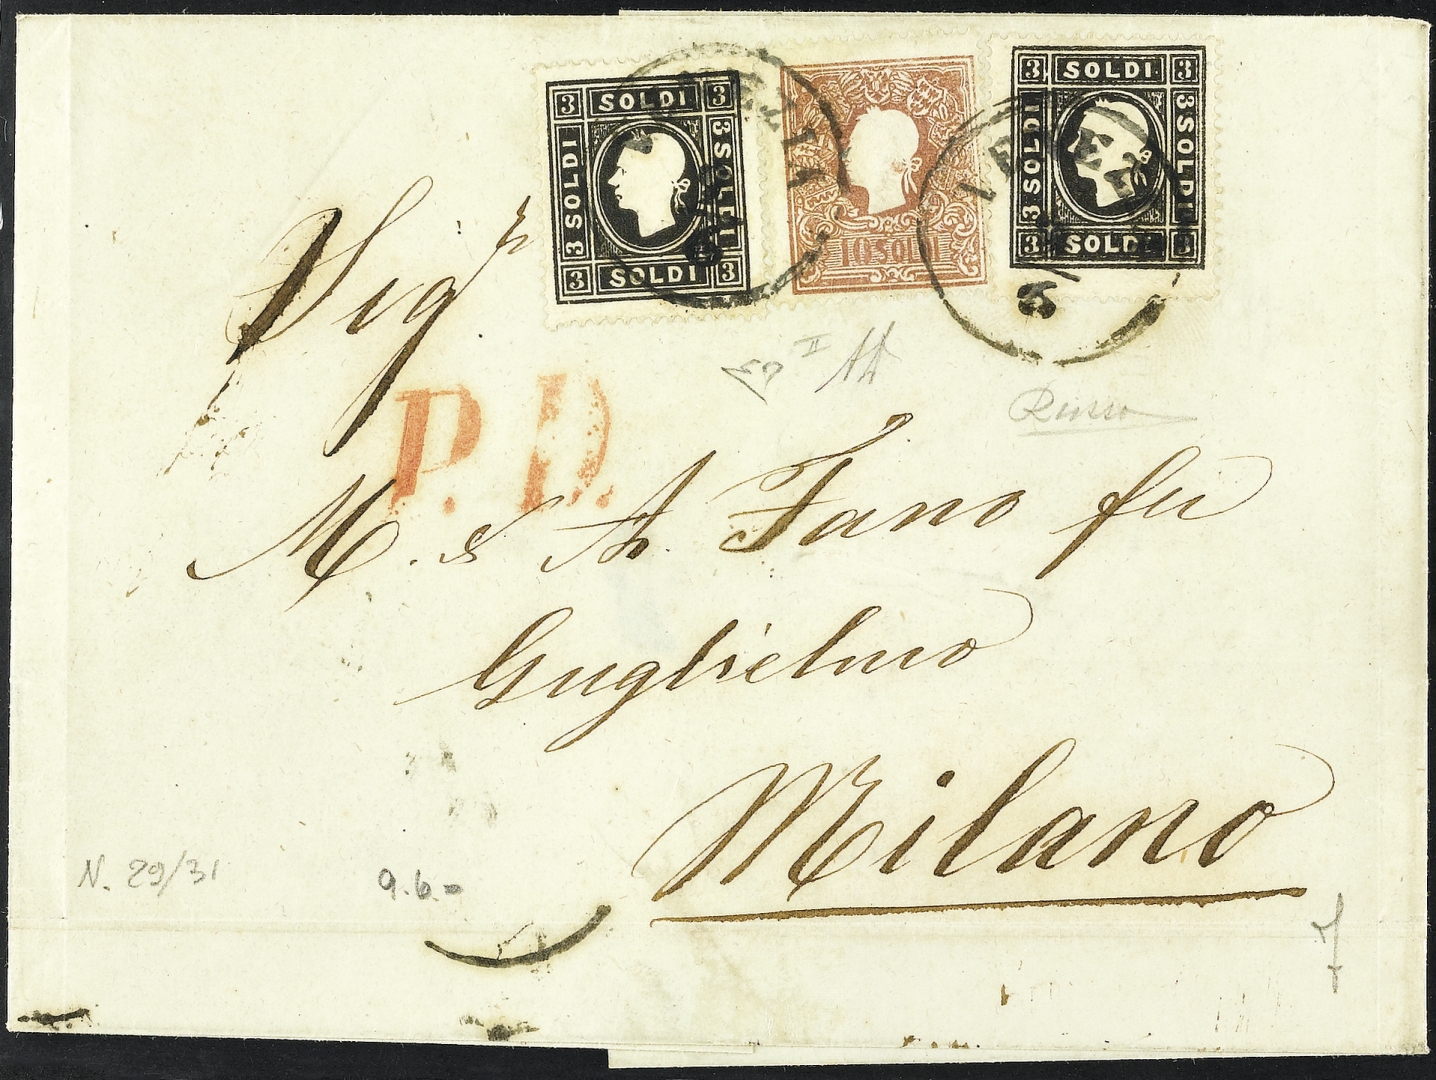 3 SOLDI 3
3 SOLDI
3 SOLDI
3 SOLDI 3
VENEZIA
10 SOLDI
3 SOLDI 3
3 SOLDI
3 SOLDI
3 SOLDI 3
VENEZ
Sigr
P.D.
M. & A. Fano fu
Guglielmo
Milano
II
N. 29/31
9.6.=